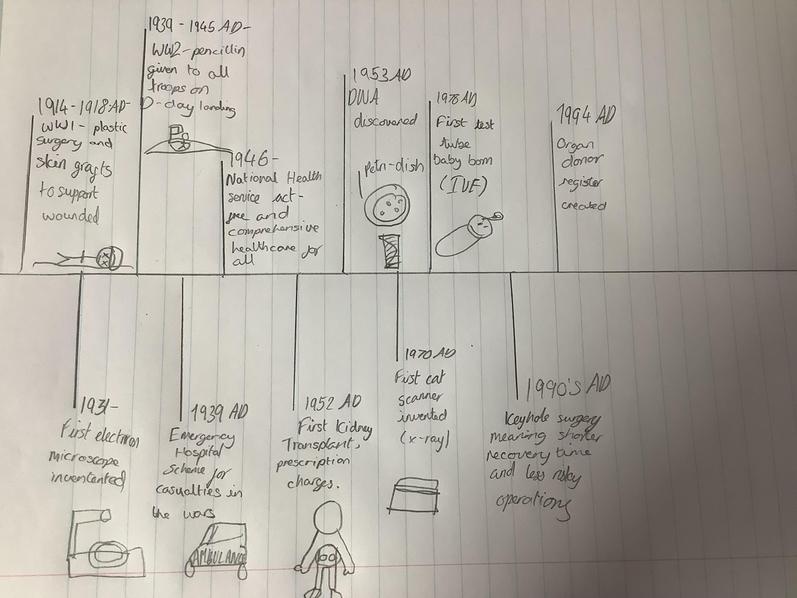 1914-1918 AD-
WW1- plastic
surgery and
skin grafts
to support
wounded
1939-1945 AD-
WW2-pencillin
given to all
troops on
D-day landing
1946-
National Health
service act-
free and
comprehensive
healthcare for
all
1953 AD
DNA
discovered
petri-dish
1978 AD
First test
tube
baby born
(IVF)
1994 AD
Organ
donor
register
created
1931-
First electron
microscope
inventented
1939 AD
Emergency
Hospital
Scheme for
casualties in
the wars
AMBULANCE
1952 AD
First Kidney
Transplant,
prescription
charges.
1970 AD
First cat
scanner
invented
(x-ray)
1990's AD
Keyhole surgery
meaning shorter
recovery time
and less risky
operations